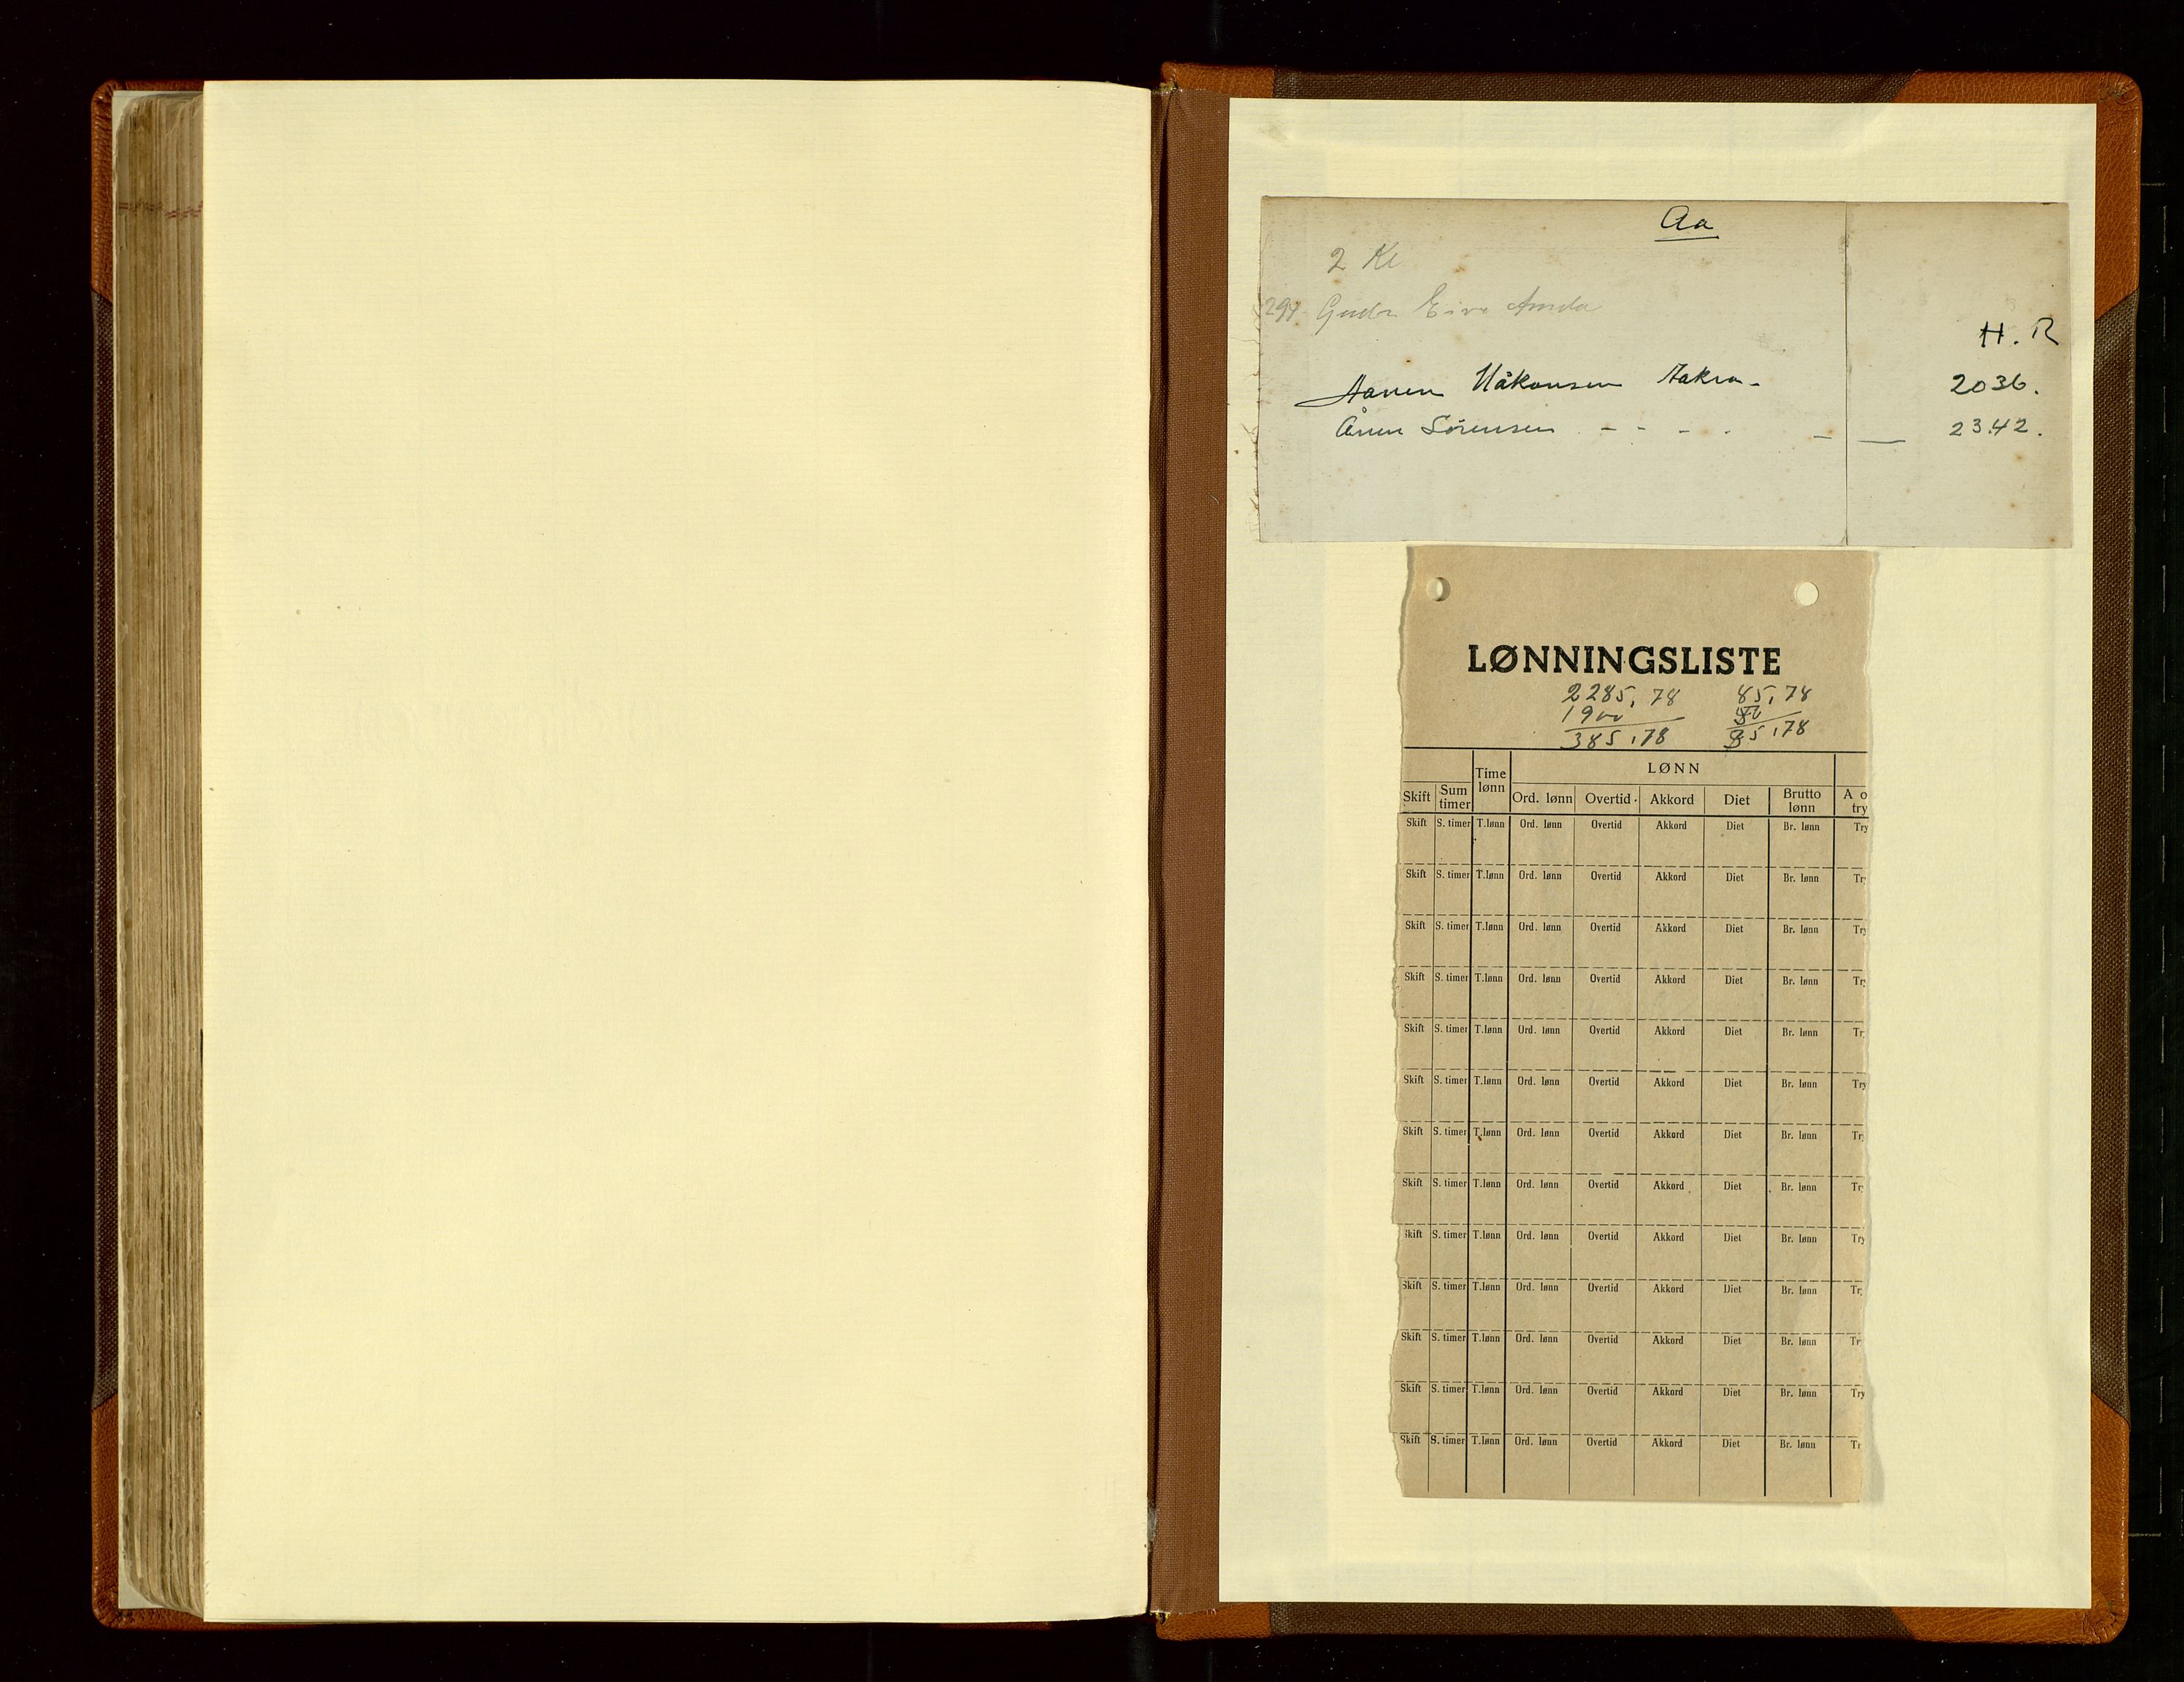 Aa
2 Kl
294. Gudr Eive
H. R
Aanen Håkonsen Aakra- 2036.
Ånen Sörensen - - - - - — 2342.
LØNNINGSLISTE
2285,78 85,78
1900 50
385,78 35,78
Skift Sum timer Time lønn LØNN A o try
Ord. lønn Overtid Akkord Diet Brutto lønn
Skift S. timer T.lønn Ord. lønn Overtid Akkord Diet Br. lønn Try
Skift S. timer T.lønn Ord. lønn Overtid Akkord Diet Br. lønn Try
Skift S. timer T.lønn Ord. lønn Overtid Akkord Diet Br. lønn Try
Skift S. timer T.lønn Ord. lønn Overtid Akkord Diet Br. lønn Try
Skift S. timer T.lønn Ord. lønn Overtid Akkord Diet Br. lønn Tr
Skift S. timer T.lønn Ord. lønn Overtid Akkord Diet Br. lønn Try
Skift S. timer T.lønn Ord. lønn Overtid Akkord Diet Br. lønn Tr
Skift S. timer T.lønn Ord. lønn Overtid Akkord Diet Br. lønn Tr
Skift S. timer T.lønn Ord. lønn Overtid Akkord Diet Br. lønn Try
Skift S. timer T.lønn Ord. lønn Overtid Akkord Diet Br. lønn Tr
Skift S. timer T.lønn Ord. lønn Overtid Akkord Diet Br. lønn Tr
Skift S. timer T.lønn Ord. lønn Overtid Akkord Diet Br. lønn Try
Skift S. timer T.lønn Ord. lønn Overtid Akkord Diet Br. lønn Tr